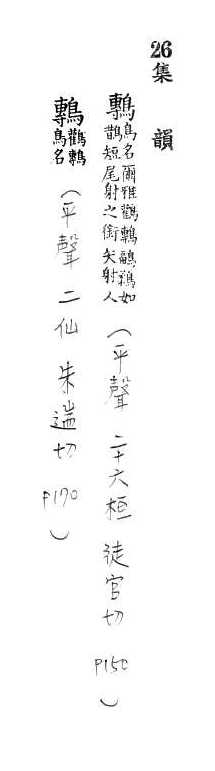 26 集 韻
鷒 鳥名爾雅鸛鷒鶝鶔如
鵲短尾射之銜矢射人 (平聲 二十六桓 徒官切 P150)
鷒 鸛鷒
鳥名 (平聲 二仙 朱遄切 P170)